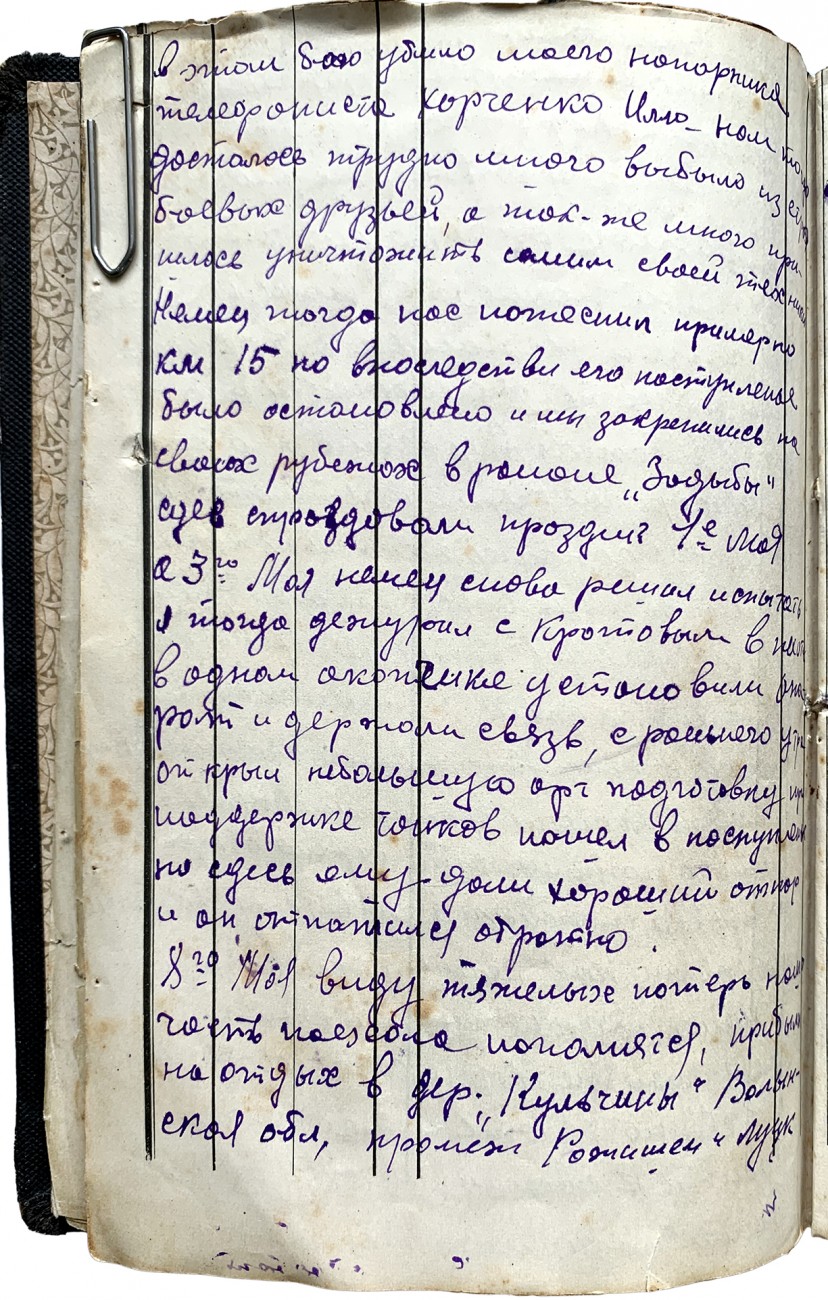 в этом бою убило моего напарника
телефониста Харченко Илло_ нам тогда
досталось трудно много выбыло из строя
боевых друзьей, а так-же много при-
шлось уничтожить самим своей техники
Немец тогда нас потеснил примерно
км 15 но впоследстви его наступленье
было остановлено и мы закрепились на
своих рубежах в районе „Задыбы"
сдев спраздовали праздик 1е Мая
а 3го Мая немец снова решил испытать
я тогда дежурил с Кротовым в
в одном окопчике установили
рат и держали связь, с раннего утра
открыл небольшую арт подготовку при
поддержке танков пошел в наступлен
но сдесь ему дали хороший отпор
и он откатился обратно.
8го Мая виду тяжелых потерь наша
часть поехала пополнятся, прибыли
на отдых в дер. „Кульчины" Волын-
ская обл, промеж Рожищем и Луцк